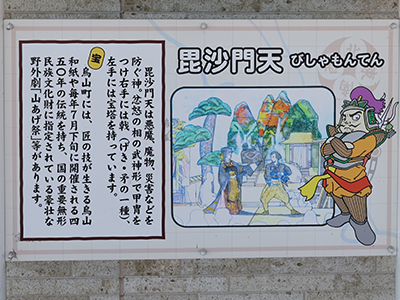 毘沙門天 びしゃもんてん
毘沙門天は悪魔、魔物、災害などを
防ぐ神。忿怒の相の武神形で甲冑を
つけ右手には戟（げき・矛の一種）、
左手には宝塔を持っています。
宝
烏山町には、匠の技が生きる烏山
和紙や毎年７月下旬に開催される四
五〇年の伝統を持ち、国の重要無形
民族文化財に指定されている豪壮な
野外劇「山あげ祭」等があります。